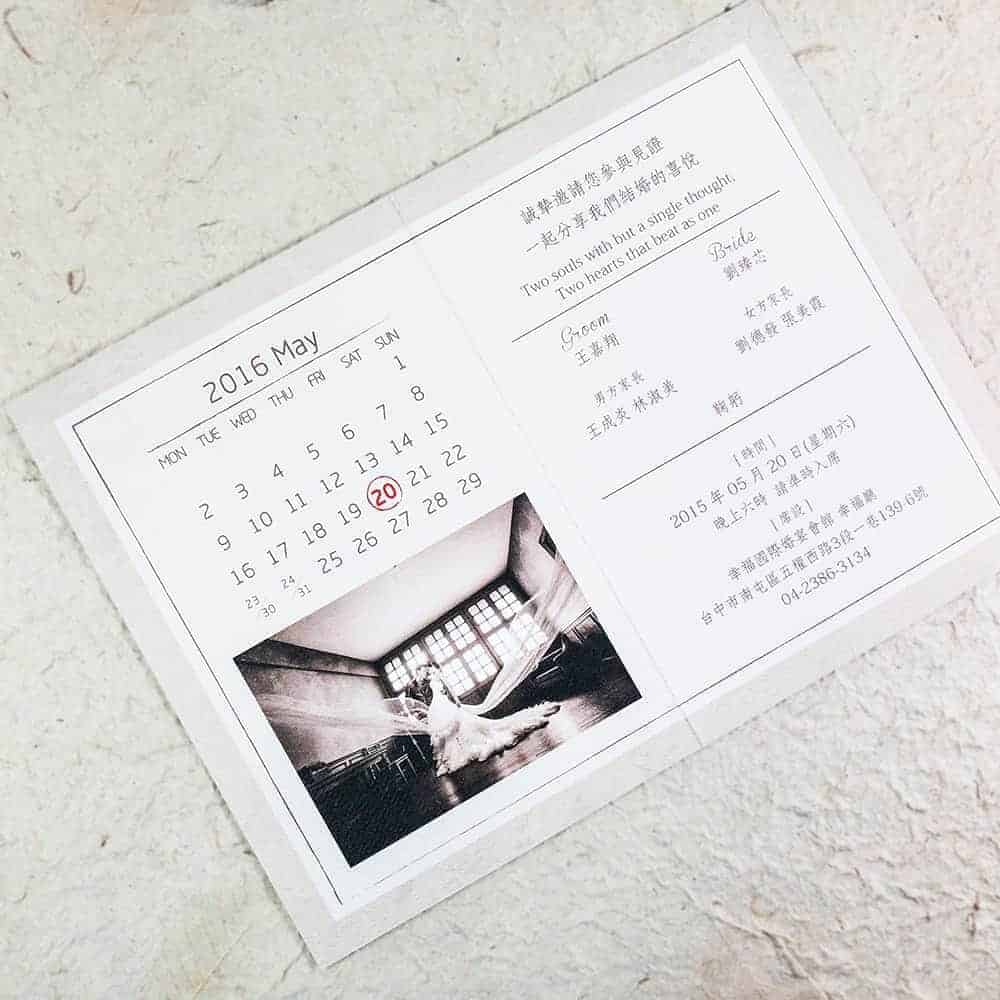 2016 May
MON TUE WED THU FRI SAT SUN
1
2 3 4 5 6 7 8
9 10 11 12 13 14 15
16 17 18 19 20 21 22
23 24 25 26 27 28 29
30 31
誠摯邀請您參與見證
一起分享我們結婚的喜悅
Two souls with but a single thought,
Two hearts that beat as one
Groom
王嘉翔
男方家長
王成炎 林淑美
Bride
劉臻芯
女方家長
劉德發 張美霞
鞠躬
[時間]
2015 年 05 月 20 日(星期六)
晚上六時 請準時入席
[席設]
幸福國際婚宴會館 幸福廳
台中市南屯區五權西路3段一巷139-6號
04-2386-3134